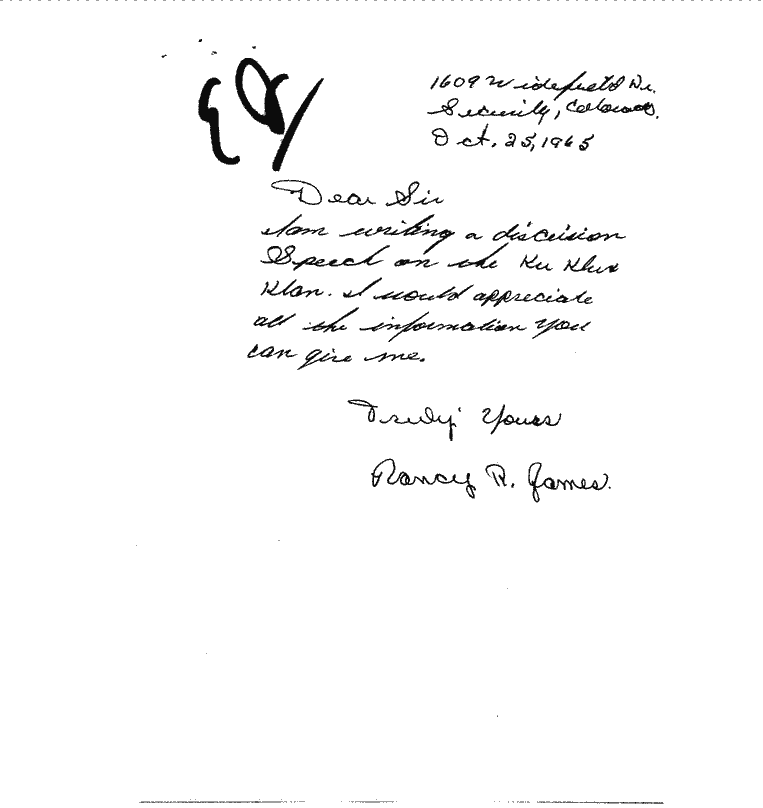 1609 Widefield Dr.
Security, Colorado.
Oct. 25, 1965
Dear Sir
I am writing a discision
Speech on the Ku Klux
Klan. I would appreciate
all the information you
can give me.
Truly Yours
Nancy R. James.